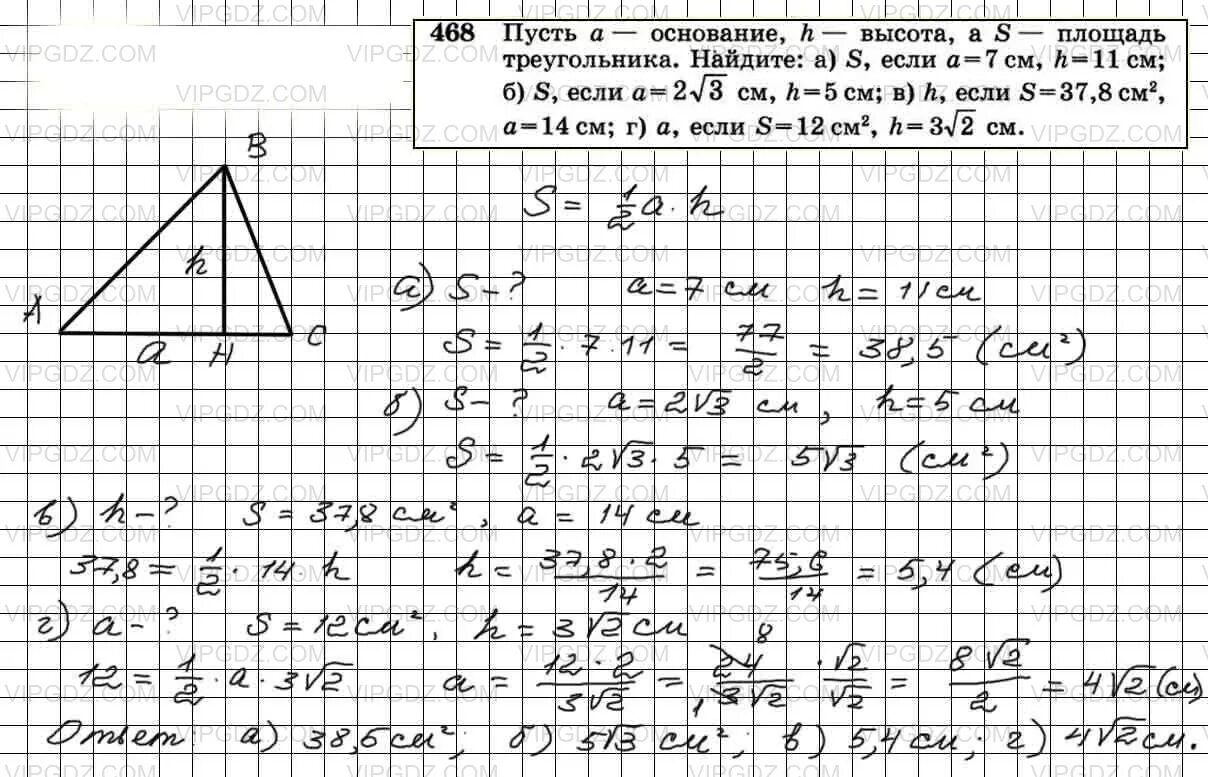 468 Пусть a — основание, h — высота, а S — площадь
треугольника. Найдите: а) S, если a=7 см, h=11 см;
б) S, если a=2√3 см, h=5 см; в) h, если S=37,8 см²,
a=14 см; г) a, если S=12 см², h=3√2 см.
B
h
A
a
H
C
S = 1/2 a · h
а) S – ? a = 7 см h = 11 см
S = 1/2 · 7 · 11 = 77/2 = 38,5 (см²)
б) S – ? a = 2√3 см, h = 5 см
S = 1/2 · 2√3 · 5 = 5√3 (см²)
в) h – ? S = 37,8 см², a = 14 см
37,8 = 1/2 · 14 · h h = 37,8 · 2/14 = 75,6/14 = 5,4 (см)
г) a – ? S = 12 см², h = 3√2 см
8
12 = 1/2 · a · 3√2 a = 12 · 2/3√2 = 24/3√2 · √2/√2 = 8√2/2 = 4√2 (см)
1
Ответ: а) 38,5 см²; б) 5√3 см²; в) 5,4 см, г) 4√2 см.
VIPGDZ.COM